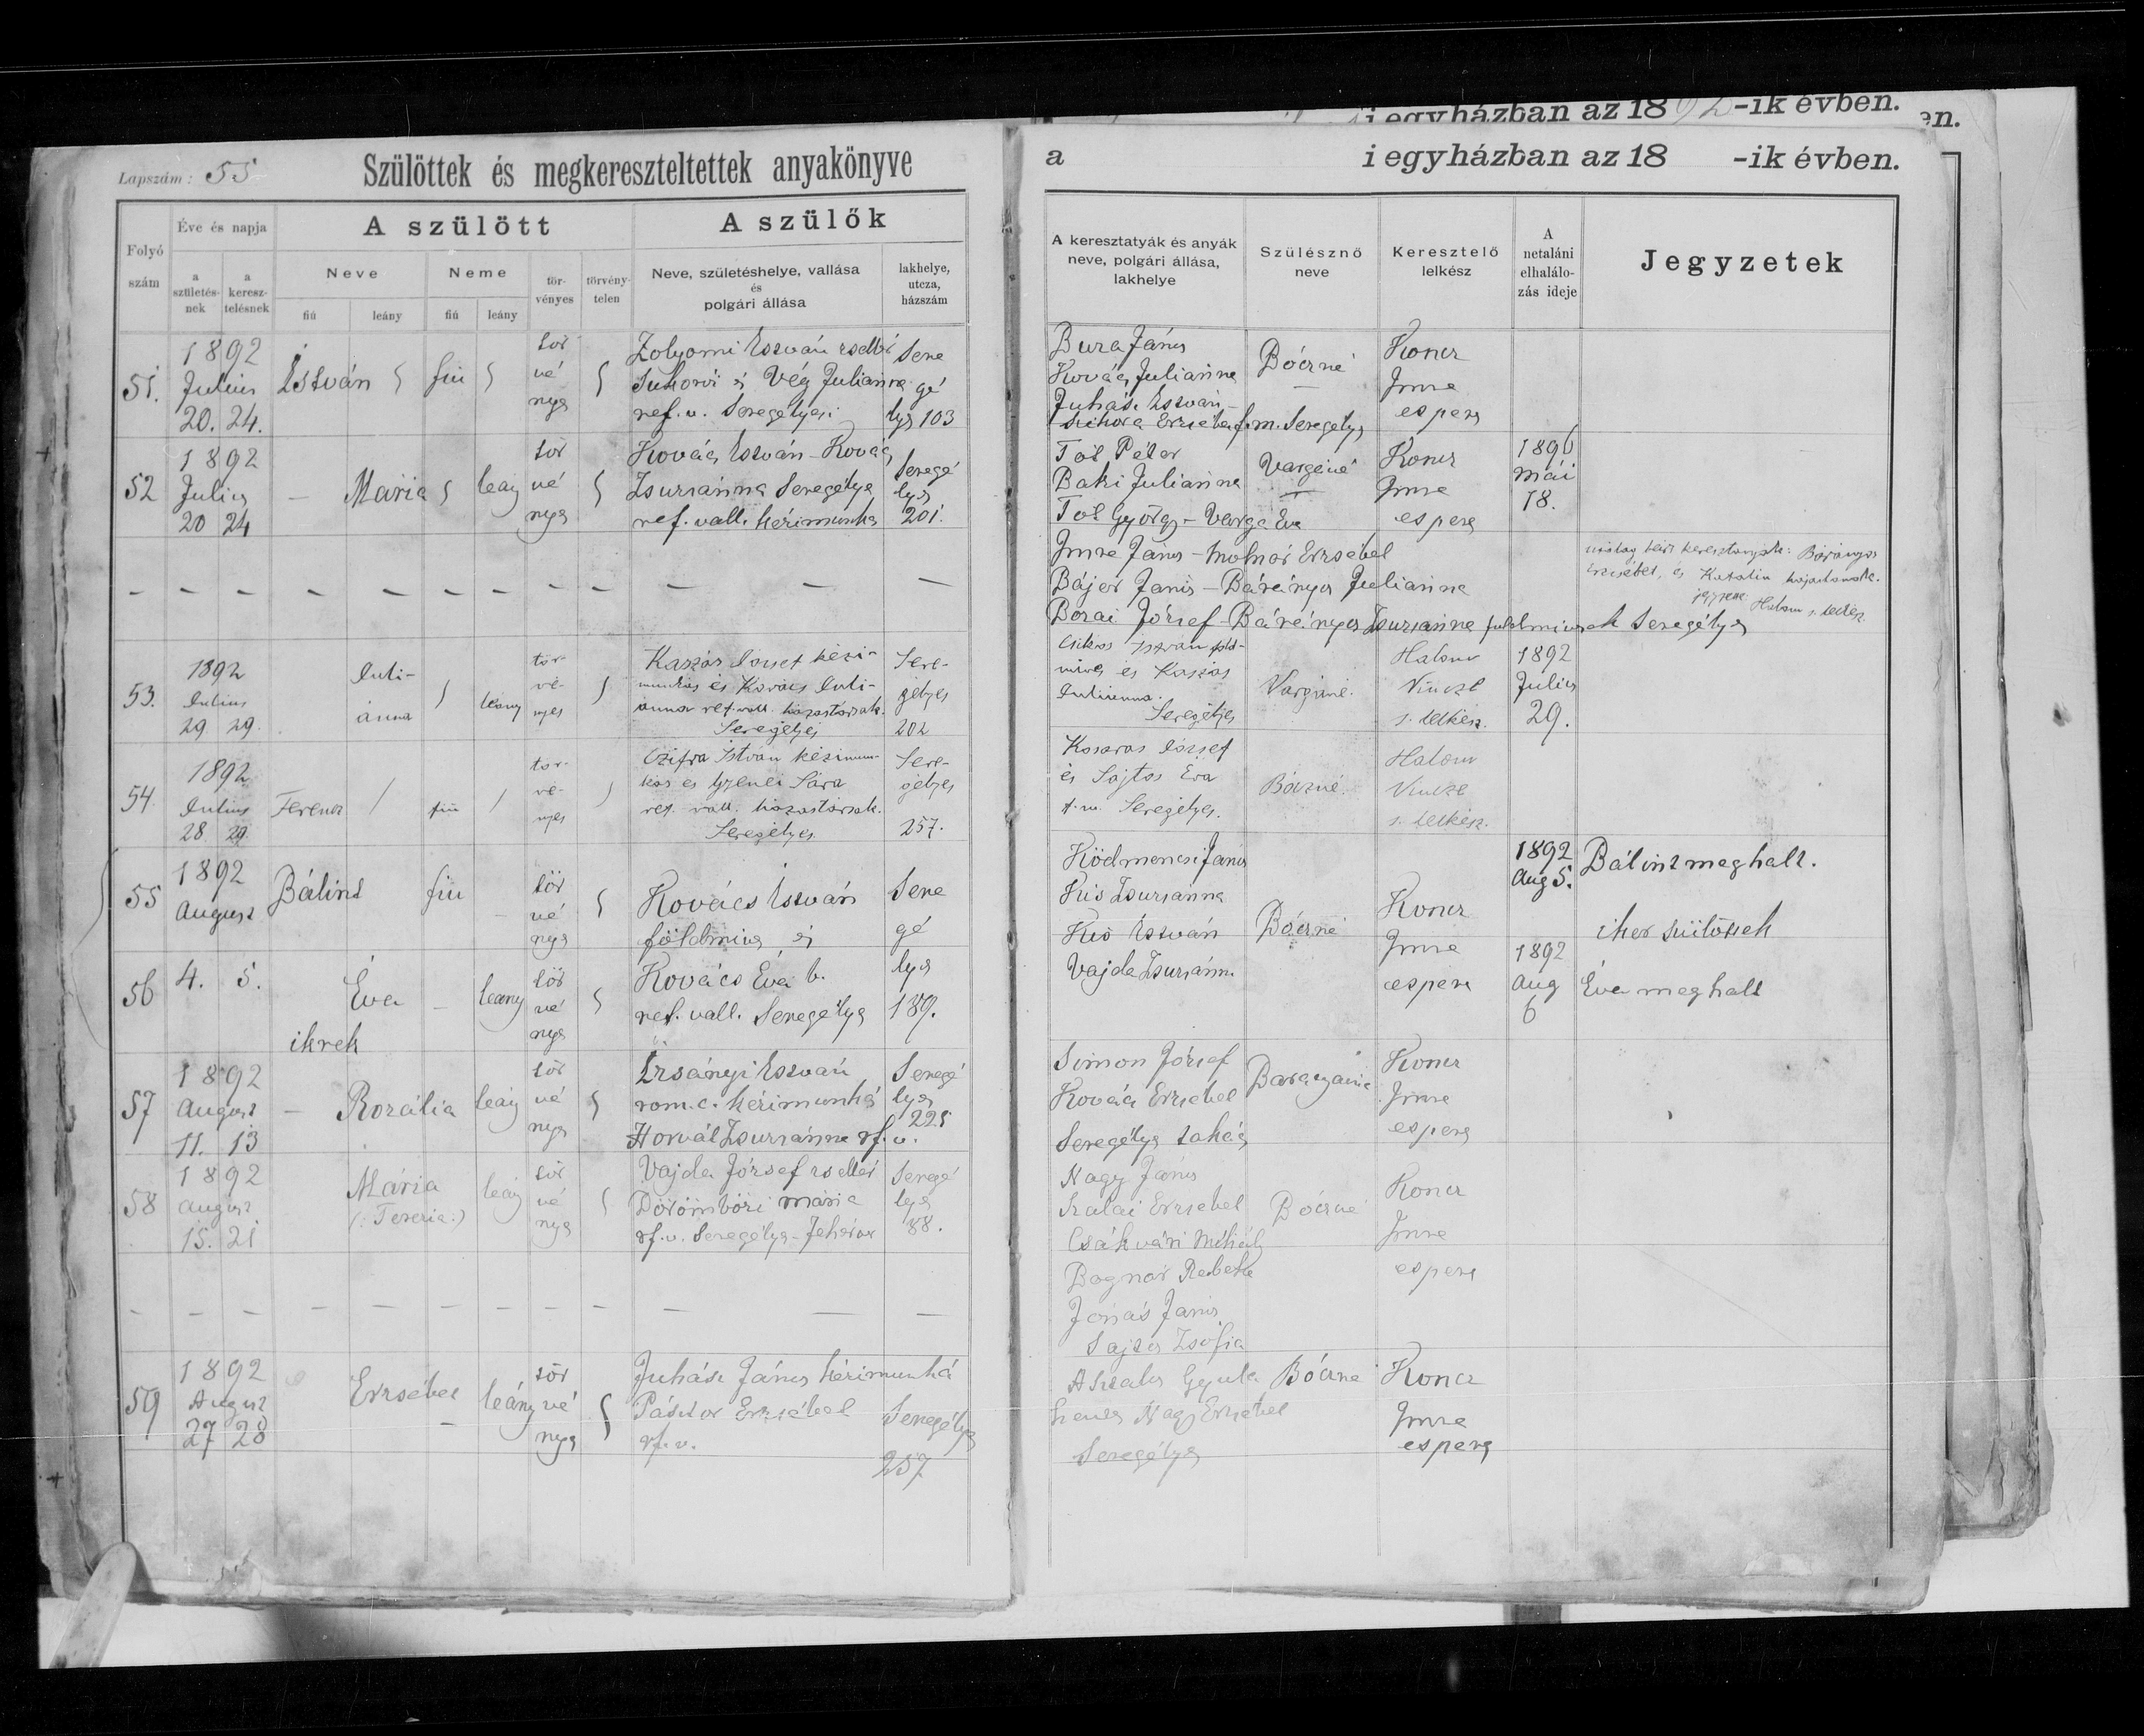 i egyházban az 1892-ik évben.
en.
Lapszám: 55
Szülöttek és megkereszteltettek anyakönyve
a i egyházban az 18 -ik évben.
Folyó szám
Éve és napja
a születésnek
a keresztelésnek
A szülött
Neve
fiú
leány
Neme
fiú
leány
törvényes
törvénytelen
A szülők
Neve, születéshelye, vallása
és
polgári állása
lakhelye, utcza, házszám
A keresztatyák és anyák
neve, polgári állása,
lakhelye
Szülésznő
neve
Keresztelő
lelkész
A
netaláni
elhalálo-
zás ideje
Jegyzetek
51.
1892
Julius
20. 24.
István
fiu
tör
vé
nyes
Zolyomi István zsellér
Sukorói és Vég Julianna
ref. v. Seregélyesi
Sere
gé
lyes 103
Bura János
Kovács Julianna
Juhász István
Erzsébet f.m. Seregélyes
Bóczné
Koncz
Imre
esperes
52
1892
Julius
20 24
–
Mária
leány
tör
vé
nyes
Kovács István – Kovács
Zsuzsánna Seregélyes
ref. vall. kézimunkás
Seregé
lyes
201.
Tót Péter
Baki Julianna
Tót György – Varga Éva
Vargáné
Koncz
Imre
esperes
1896
Mái
18.
Imre János – Molnár Erzsébet
Bájer János – Bárányos Julianna
Borai József – Bárányos Zsuzsánna földmivesek Seregélyes
keresztanyák: Bárányos
Erzsébet, és Katalin hajadonok.
Halom s. lelkész
53.
1892
Julius
29 29.
Juli-
ánna
leány
tör-
vé-
nyes
Kaszás József kézi-
munkás és Kovács Juli-
anna ref. vall. házastársak.
Seregélyes
Sere-
gélyes
202
Csikos István föld-
mives és Kaszás
Julianna.
Seregélyes
Vargáné.
Halom
Vincze
s. lelkész.
1892
Julius
29.
54.
1892
Julius
28 29.
Ferencz
fiu
tör-
vé-
nyes
Czifra István kézimun-
kás és Sára
ref. vall. házastársak.
Seregélyes
Sere-
gélyes
257.
Kosaras József
és Sajtos Éva
f.m. Seregélyes.
Bóczné.
Halom
Vincze
s. lelkész.
55
1892
August
Bálint
fiu
tör
vé
nyes
Kovács István
földmives és
Sere
gé
Ködmencsi János
Kis Zsuzsánna
Kis István
Vajda Zsuzsánna
Bóczné
Koncz
Imre
esperes
1892
Aug 5.
Bálint meghalt.
iker szülöttek
56
4. 5.
Éva
–
leány
tör
vé
nyes
ikrek
Kovács Éva h.
ref. vall. Seregélyes
lyes
189.
1892
Aug
6
Éva meghalt
57
1892
August
11. 13
–
Rozália
leány
tör
vé
nyes
Ersányi István
rom. c. kézimunkás
Horvát Zsuzsánna rf. v.
Seregé
lyes
225
Simon József
Kovács Erzsébet
Seregélyes lakós
Koncz
Imre
esperes
58
1892
August
15. 21
Mária
(: Terézia :)
leány
tör
vé
nyes
Vajda József zsellér
Dörömbözi Mária
rf. v. Seregélyes – Fehérvár
Seregé
lyes
88.
Nagy János
Szalai Erzsébet
Csákvári Mihály
Bognár Rebeka
Jónás János
Sajtos Zsófia
Bóczné
Koncz
Imre
esperes
59
1892
August
27 28
Erzsébet
leány
tör
vé
nyes
Juhász János kézimunkás
Pásztor Erzsébet
rf. v.
Seregélyes
257
Asztalos Gyula
Nagy Erzsébet
Seregélyes
Bóczné
Koncz
Imre
esperes